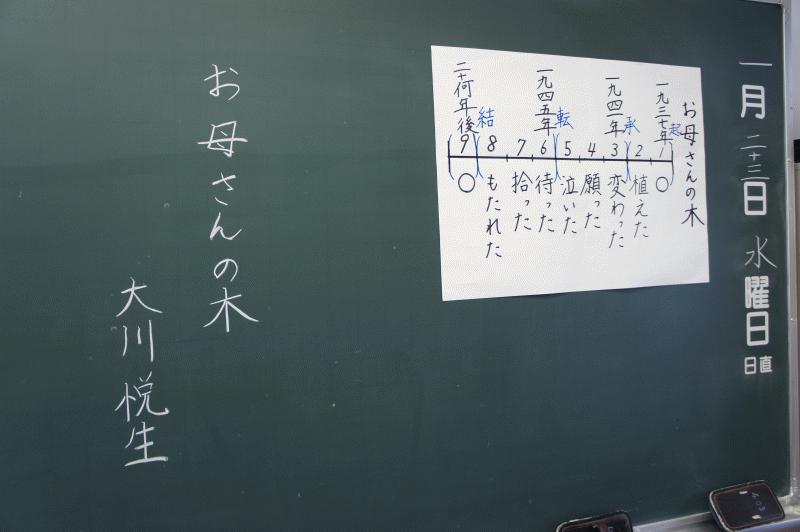 一月二十三日水曜日
日直
お母さんの木
一九三七年
一九四一年
一九四五年
二十何年後
起
承
転
結
1
2
3
4
5
6
7
8
9
○
植えた
変わった
願った
泣いた
待った
拾った
もたれた
○
お母さんの木
大川悦生